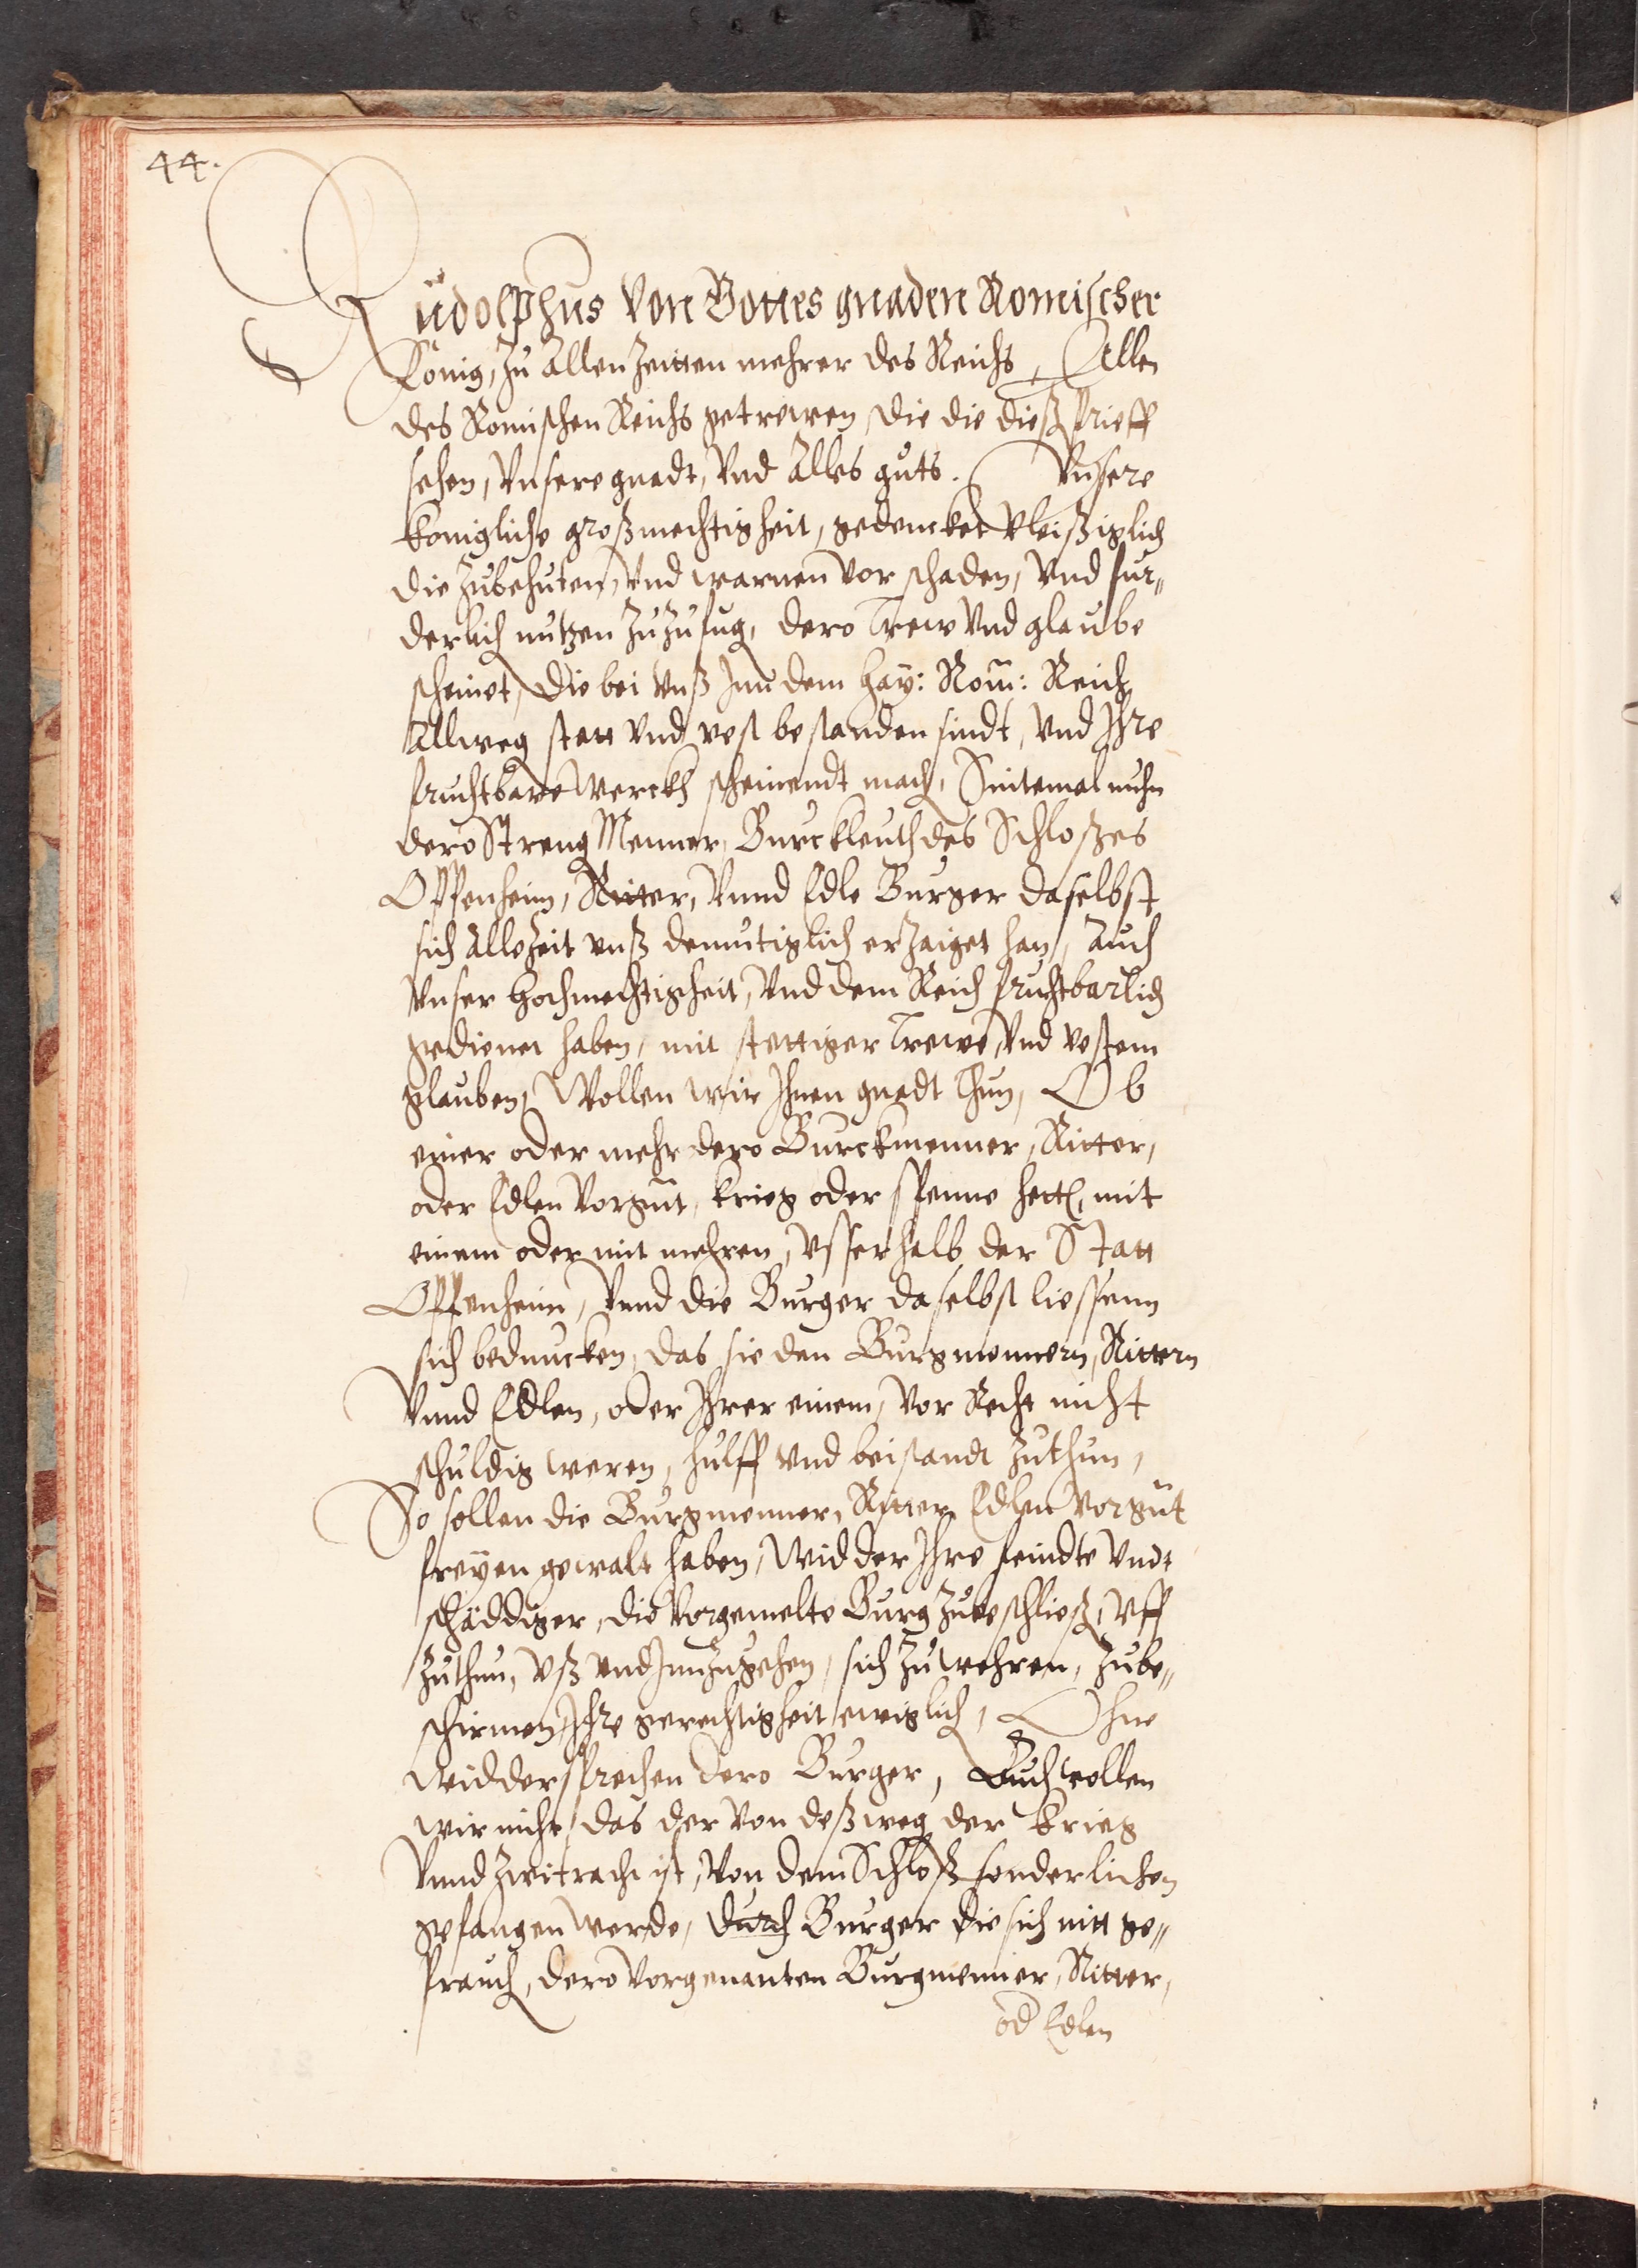 44.
Rudolphus von Gottes gnaden Romischer
König, zu allen Zeitten mehrer des Reichs, Allen
des Romischen Reichs getrewen, die die dieß brieff
sehen, Vnsere gnadt, Vnd alles guts. Vnsere
konigliche großmechtigheit, gedencket vleißiglich
die zubehuten, Vnd warnen vor schaden, Vnd fur„
derlich nutzen zuzufug, dero Trew Vnd glaube
scheinet, Die bei Vnß Inn dem hay: Rom: Reich
Allweg stett Vnd vest bestanden sindt, Vnd Ihre
fruchtbare Werckh scheinendt mach, Sintemal nuhn
dero Streng Menner, Burckleuth des Schloßes
Oppenheim, Ritter, Vnnd Edle Burger daselbst
sich allezeit vnß demutiglich erzaiget han, Auch
Vnser hochmechtigheit, Vnd dem Reich fruchtbarlich
gedienet haben, mit stettiger Trewe, Vnd vestem
glauben, Wollen wir Ihnen gnadt thun, Ob
einer oder mehr dero Burckmenner, Ritter,
oder Edlen Vorgnt, krieg oder spenne hett, mit
einem oder mit mehren, vsserhalb der Statt
Oppenheim, Vnnd die Burger daselbst liessenn
sich beduncken, das sie den Burgmennern, Rittern
Vnnd Edlen, oder Ihrer einem, vor Recht nicht
schuldig weren, hulff vnd beistandt zuthun,
So sollen die Burgmenner, Ritter, Edlen Vorgnt
freyen gewalt haben, Widder Ihre feindte Vndt
schäddiger, die Vorgemelte Burg zubeschließ, Vff
zuthun, vß vnd Innzugehen, sich zuwehren, zube„
schirmen, Ihre gerechtigheit ewiglich, Ohne
Widdersprechen dero Burger, Auch wollen
wir nicht, das der von deßweg der krieg
Vnnd Zwitracht ist, Von dem Schloß sonderlichen
gefangen werde, durch Burger die sich nitt ge„
brauch, dero Vorgenanten Burgmenner, Ritter,
od Edlen